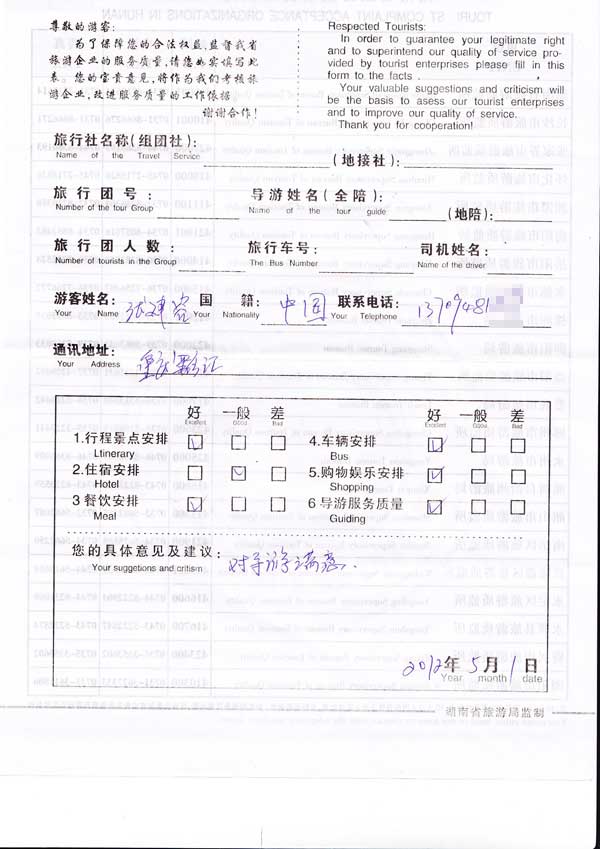 尊敬的游客:
为了保障您的合法权益,监督我省
旅游企业的服务质量,请您如实填写此
表。您的宝贵意见,将作为我们考核旅
游企业,改进服务质量的工作依据
谢谢合作!
Respected Tourists:
In order to guarantee your legitimate right
and to superintend our quality of service pro-
vided by tourist enterprises please fill in this
form to the facts .
Your valuable suggestions and criticism will
be the basis to asess our tourist enterprises
and to improve our quality of service.
Thank you for cooperation!
旅行社名称(组团社): (地接社):
Name of the Travel Service
旅行团号: 导游姓名(全陪): (地陪):
Number of the tour Group Name of the tour guide
旅行团人数: 旅行车号: 司机姓名:
Number of tourists in the Group The Bus Number Name of the driver
游客姓名: 国籍: 中国 联系电话: 13709481
Your Name Your Nationality Your Telephone
通讯地址: 重庆
Your Address
好 一般 差 好 一般 差
Excellent Good Bad Excellent Good Bad
1.行程景点安排 4.车辆安排
Ltinerary Bus
2.住宿安排 5.购物娱乐安排
Hotel Shopping
3 餐饮安排 6 导游服务质量
Meal Guiding
您的具体意见及建议: 对导游满意.
Your suggetions and critism
2012年5月1日
Year month date
湖南省旅游局监制